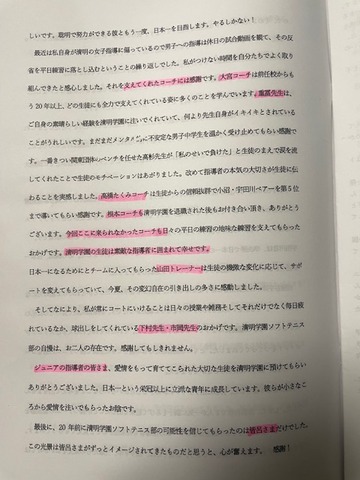 しいです。聡明で努力ができる彼ともう一度、日本一を目指します。やるしかない！
最近は私自身が清明の女子指導に偏っているので男子への指導は休日の試合動画を観て、その反
省を平日練習に落とし込むということの繰り返しでした。私がつけない時間を自分たちでよく取り
組んできたと感心しました。それを支えてくれたコーチには感謝です。大宮コーチは前任校からも
う20年以上、どの生徒にも全力で支えてくれている姿に多くのことを学んでいます。重富先生は、
ご自身の素晴らしい経験を清明に注いでくれていて、何より先生自身がイキイキとされている
ことがうれしいです。まだまだメンタルに不安定な男子中学生を温かく受け止めてもらい感謝で
す。一番きつい関東団体のベンチを任せた高杉先生が「私のせいで負けた」と生徒のまえで涙を流
してくれたことで生徒のモチベーションはあがりました。改めて指導者の本気の大切さが生徒に伝
わることを実感しました。高橋たくみコーチは生徒からの信頼抜群で小沼・宇田川ペアーを第5位
まで導いてもらい感謝です。根本コーチも清明学園を退職された後もお付き合い頂き、ありがとう
ございます。今回ここに来られなかったコーチも日々の平日の練習の地味な練習を支えてもらった
おかげです。清明学園の生徒は素敵な指導者に囲まれて幸せです。
日本一になるためにとチームに入ってもらった山田トレーナーは生徒の機微な変化に応じて、サポ
ートを変えてもらっていて、今夏、その変幻自在の引き出しの多さに感動しました。
そしてなにより、私が常にコートにいけることは日々の授業や雑務そしてそれだけでなく毎日疲
れているなか、球出しをしてくれている下村先生・市岡先生のおかげです。清明学園ソフトテニス
部の自慢は、お二人の存在です。感謝してもしきれません。
ジュニアの指導者の皆さま、愛情をもって育ててこられた大切な生徒を清明学園に預けてもらい
ありがとうございました。日本一という栄冠以上に立派な青年に成長しています。彼らが小さなこ
ろから愛情を注いでもらったお陰です。
最後に、20年前に清明学園ソフトテニス部の可能性を信じてもらったのは皆呂さまだけでした。
この光景は皆呂さまがずっとイメージされてきたものだと思うと、心が震えます。 感謝！